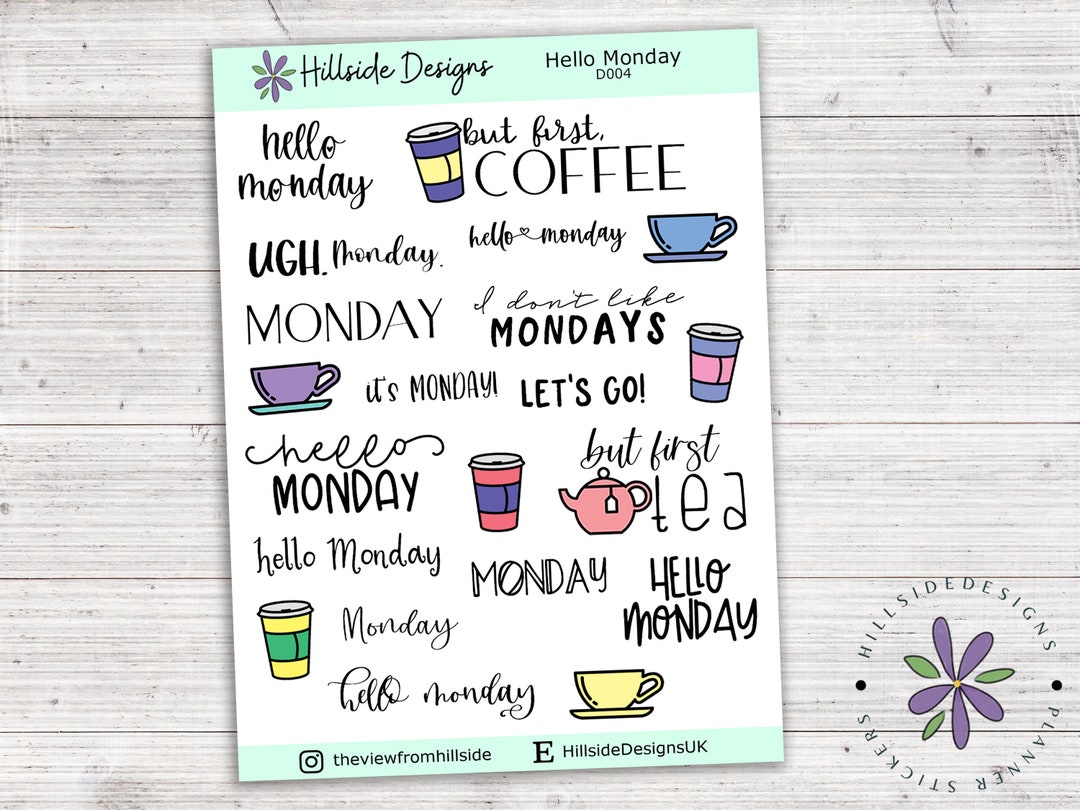 Hillside Designs
Hello Monday
D004
hello
monday
but first,
COFFEE
UGH. Monday.
hello monday
MONDAY
I don't like
MONDAYS
it's MONDAY!
LET'S GO!
hello
MONDAY
but first
tea
hello Monday
MONDAY
HELLO
MONDAY
Monday
hello monday
theviewfromhillside
E HillsideDesignsUK
HILLSIDEDESIGNS
PLANNER STICKERS